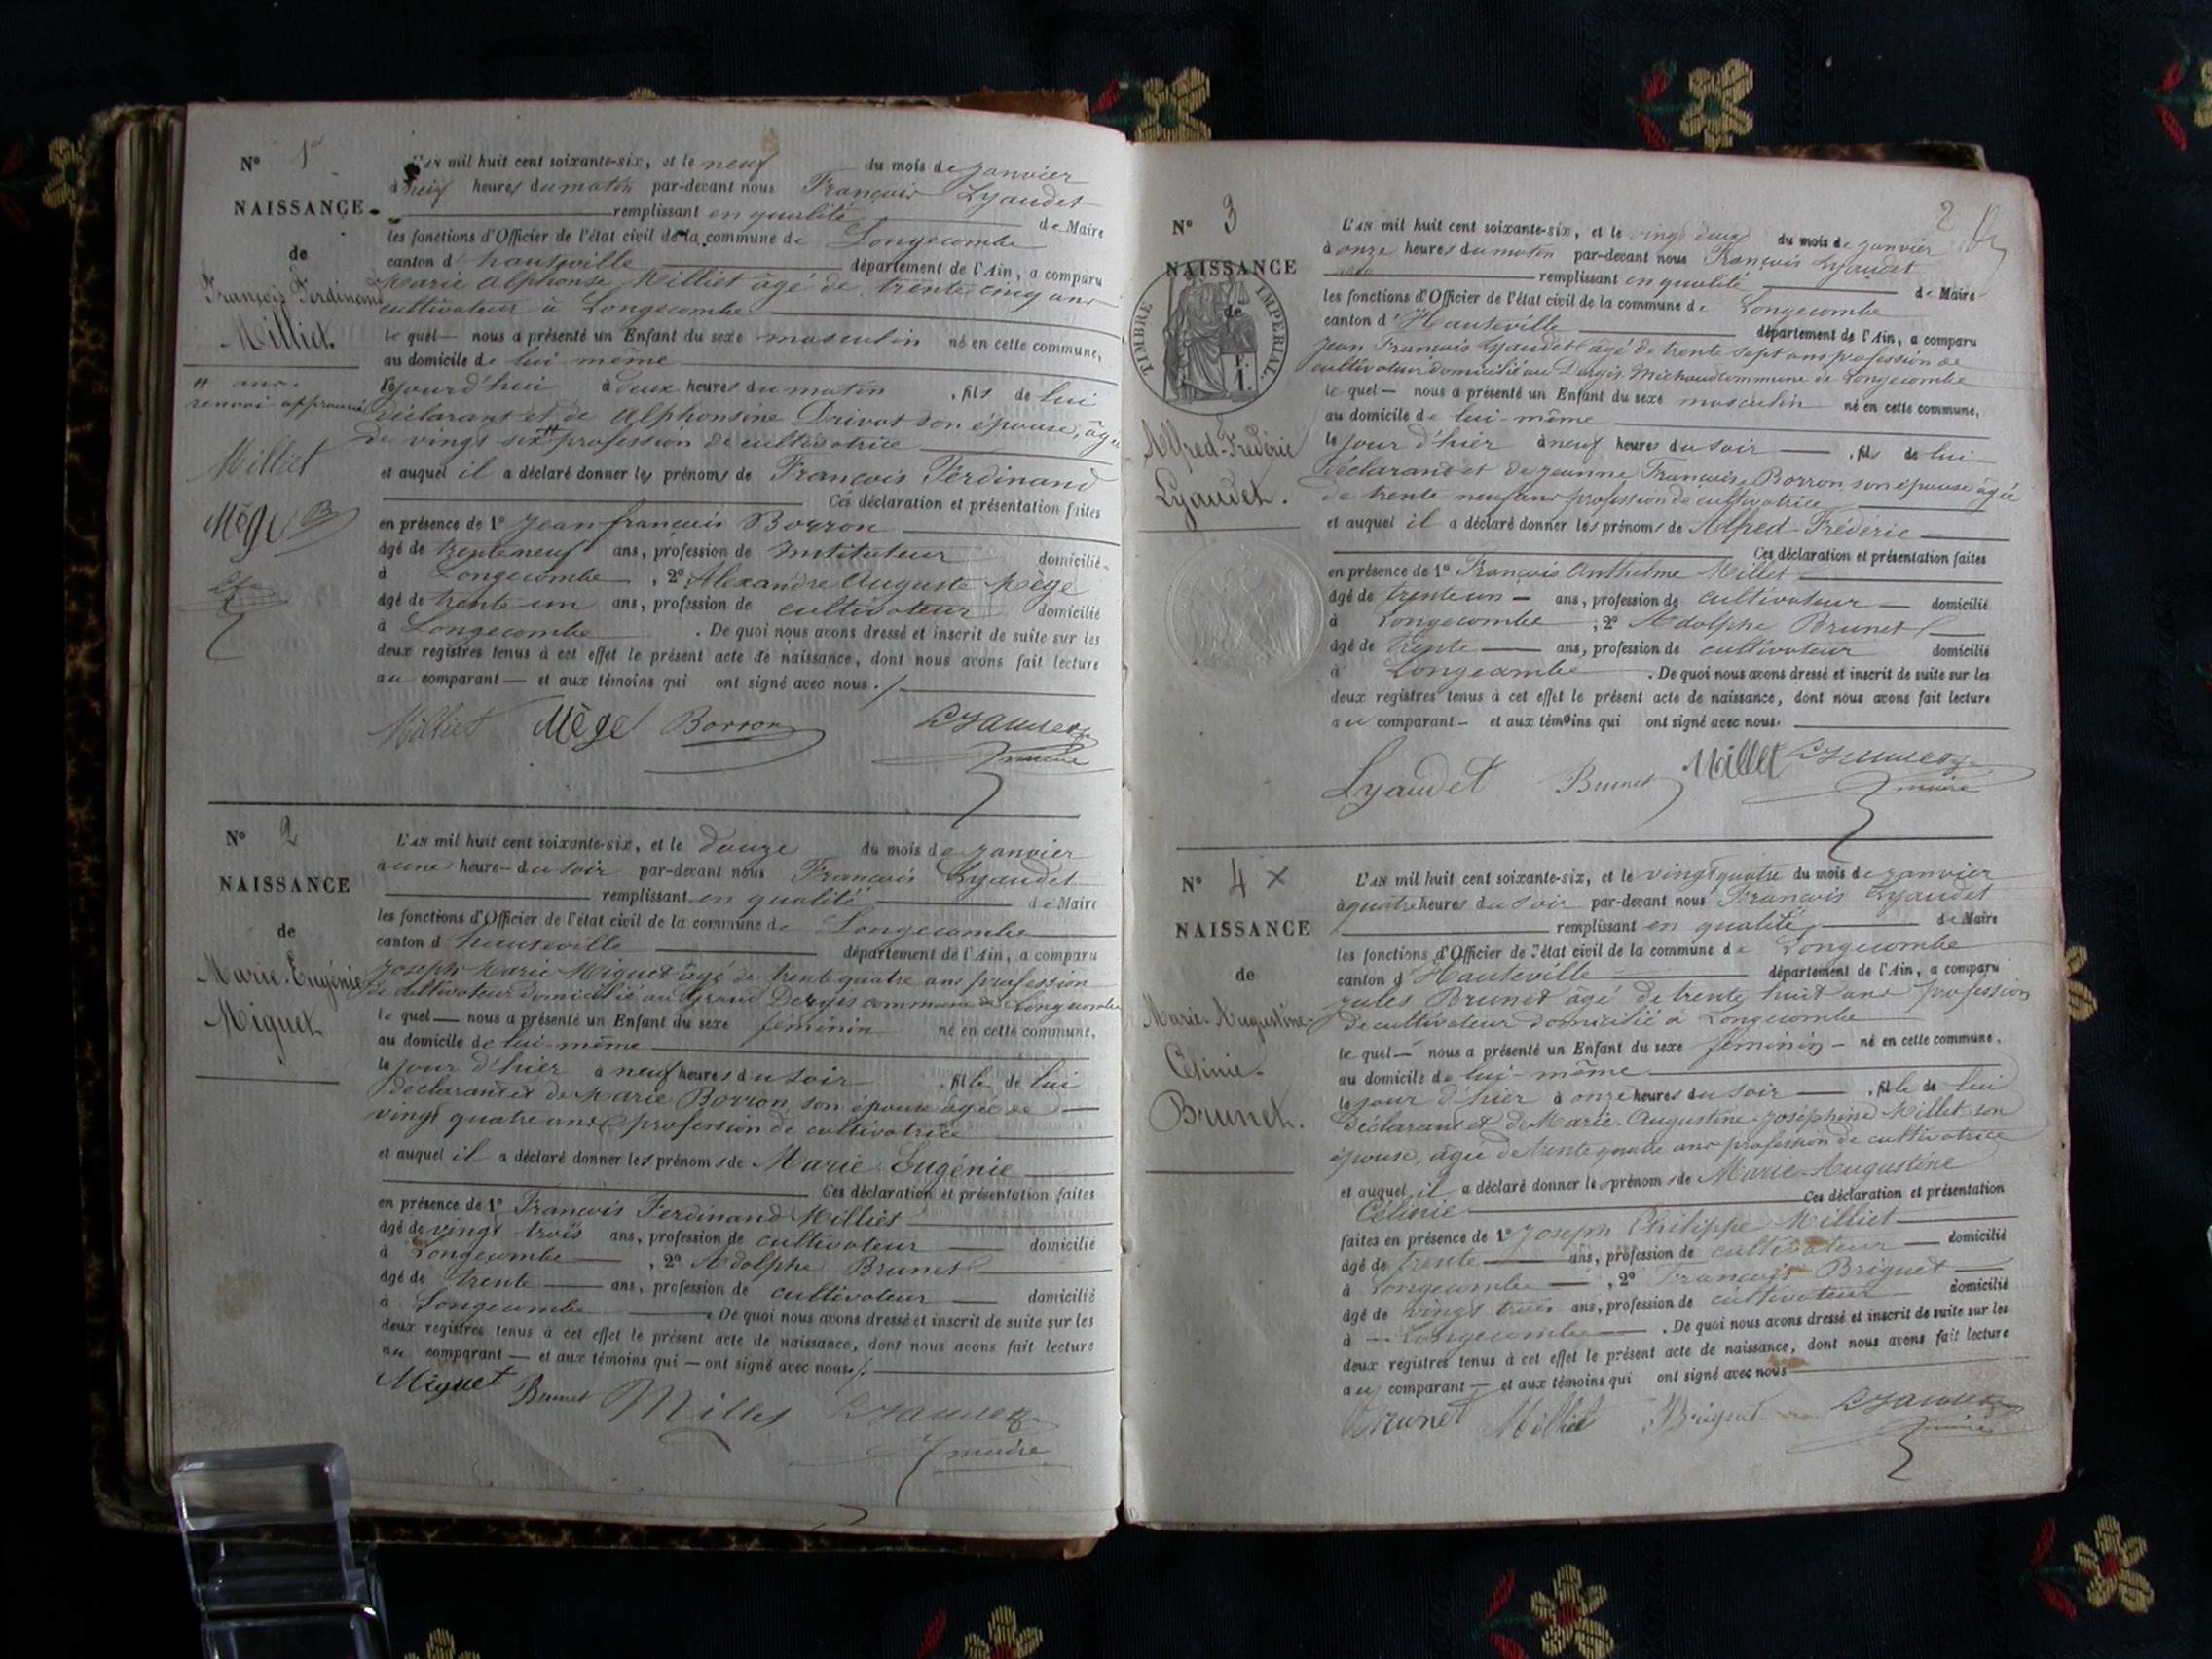 N° 1er
NAISSANCE
de
François Ferdinand
Milliet
# ans.
renvoi approuvé
Milliet
Mège B
L'AN mil huit cent soixante-six, et le neuf du mois de janvier
à neuf heures du matin par-devant nous François Lyaudet
remplissant en qualité de Maire
les fonctions d'Officier de l'état civil de la commune de Longecombe
canton d'hauteville département de l'Ain, a comparu
Marie Alphonse Milliet âgé de trente cinq ans
cultivateur à Longecombe
le quel nous a présenté un Enfant du sexe masculin né en cette commune,
au domicile de lui même
le jourd'hui à deux heures du matin , fils de lui
déclarant et de Alphonsine Drivot son épouse, âgée
de vingt six # profession de cultivatrice
et auquel il a déclaré donner les prénoms de François Ferdinand
Ces déclaration et présentation faites
en présence de 1° Jean françois Borron
âgé de trente neuf ans, profession de Instituteur domicilié
à Longecombe , 2° Alexandre Auguste Mège
âgé de trente un ans, profession de cultivateur domicilié
à Longecombe . De quoi nous avons dressé et inscrit de suite sur les
deux registres tenus à cet effet le présent acte de naissance, dont nous avons fait lecture
au comparant — et aux témoins qui ont signé avec nous ./.
Milliet Mège Borron Lyaudet
maire
N° 2
NAISSANCE
de
Marie-Eugénie
Miguet
L'AN mil huit cent soixante-six, et le douze du mois de janvier
à une heure du soir par-devant nous François Lyaudet
remplissant en qualité de Maire
les fonctions d'Officier de l'état civil de la commune de Longecombe
canton d'hauteville département de l'Ain, a comparu
Joseph Marie Miguet âgé de trente quatre ans profession
de cultivateur domicilié au Grand Dergis commune de Longecombe
le quel — nous a présenté un Enfant du sexe féminin né en cette commune,
au domicile de lui-même
le jour d'hier à neuf heures du soir , fille de lui
déclarant et de Marie Borron son épouse âgée de
vingt quatre ans profession de cultivatrice
et auquel il a déclaré donner les prénoms de Marie Eugénie
Ces déclaration et présentation faites
en présence de 1° François Ferdinand Milliet
âgé de vingt trois ans, profession de cultivateur domicilié
à Longecombe , 2° Adolphe Brunet
âgé de trente ans, profession de cultivateur domicilié
à Longecombe . De quoi nous avons dressé et inscrit de suite sur les
deux registres tenus à cet effet le présent acte de naissance, dont nous avons fait lecture
au comparant — et aux témoins qui — ont signé avec nous ./.
Miguet Brunet Milliet Lyaudet
maire
2
N° 3
NAISSANCE
de
TIMBRE IMPERIAL
Alfred-Frédéric
Lyaudet.
L'AN mil huit cent soixante-six, et le vingt deux du mois de janvier
à onze heures du matin par-devant nous François Lyaudet
remplissant en qualité de Maire
les fonctions d'Officier de l'état civil de la commune de Longecombe
canton d'Hauteville département de l'Ain, a comparu
Jean François Lyaudet âgé de trente sept ans profession de
cultivateur domicilié au Dergis Michaud commune de Longecombe
le quel — nous a présenté un Enfant du sexe masculin né en cette commune,
au domicile de lui-même
le jour d'hier à neuf heures du soir , fils de lui
déclarant et de Jeanne Françoise Borron son épouse âgée
de trente neuf ans profession de cultivatrice
et auquel il a déclaré donner les prénoms de Alfred-Frédéric
Ces déclaration et présentation faites
en présence de 1° François Anthelme Millet
âgé de trente un — ans, profession de cultivateur — domicilié
à Longecombe ; 2° Adolphe Brunet
âgé de trente ans, profession de cultivateur domicilié
à Longecombe . De quoi nous avons dressé et inscrit de suite sur les
deux registres tenus à cet effet le présent acte de naissance, dont nous avons fait lecture
au comparant — et aux témoins qui ont signé avec nous.
Lyaudet Brunet Millet Lyaudet
maire
N° 4 ×
NAISSANCE
de
Marie-Augustine-
Célinie-
Brunet.
L'AN mil huit cent soixante-six, et le vingt quatre du mois de janvier
à quatre heures du soir par-devant nous François Lyaudet
remplissant en qualité de Maire
les fonctions d'Officier de l'état civil de la commune de Longecombe
canton d'Hauteville département de l'Ain, a comparu
Jules Brunet âgé de trente huit ans profession
de cultivateur domicilié à Longecombe
le quel — nous a présenté un Enfant du sexe féminin — né en cette commune,
au domicile de lui-même
le jour d'hier à onze heures du soir , fille de lui
déclarant et de Marie-Augustine-Joséphine Millet son
épouse, âgée de trente quatre ans profession de cultivatrice
et auquel il a déclaré donner les prénoms de Marie-Augustine
Célinie Ces déclaration et présentation
faites en présence de 1° Joseph Philippe Milliet
âgé de trente ans, profession de cultivateur — domicilié
à Longecombe , 2° François Briguet
âgé de vingt trois ans, profession de cultivateur domicilié
à Longecombe . De quoi nous avons dressé et inscrit de suite sur les
deux registres tenus à cet effet le présent acte de naissance, dont nous avons fait lecture
au comparant — et aux témoins qui ont signé avec nous
Brunet Milliet Briguet Lyaudet
maire